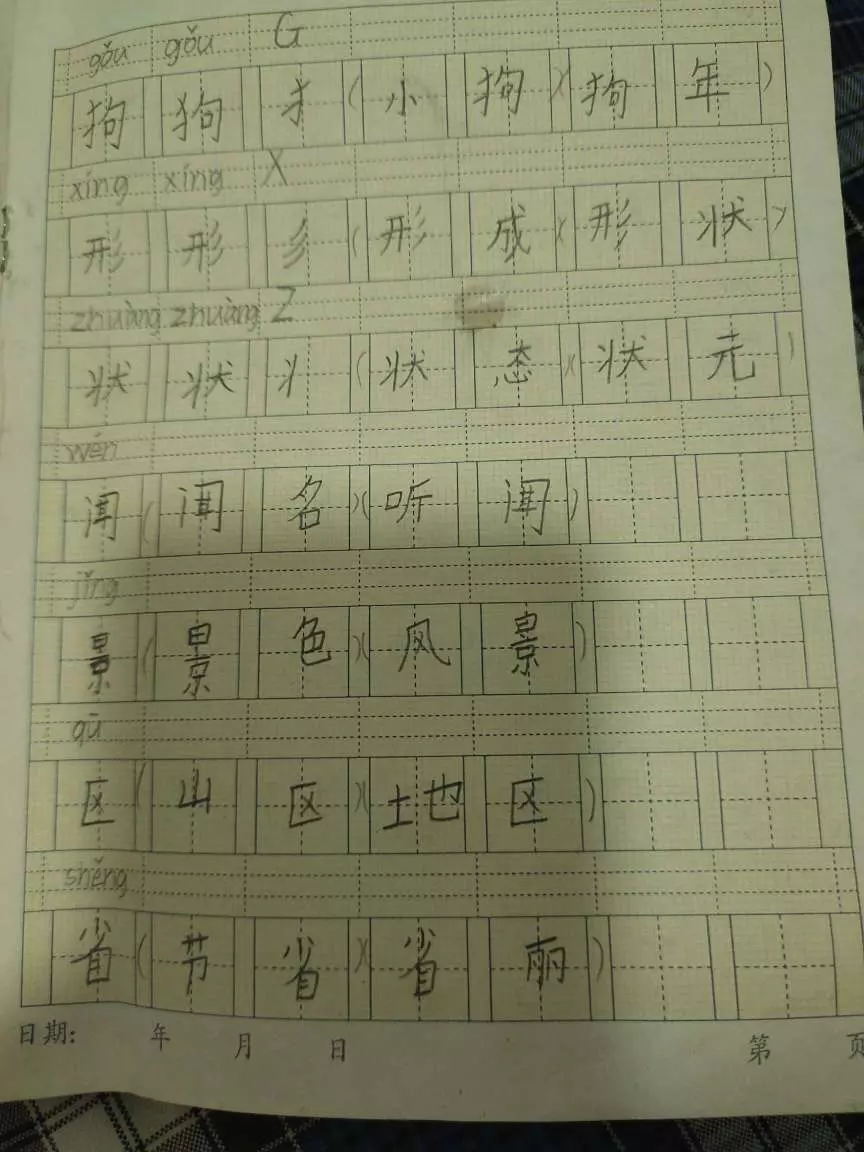 gǒu gǒu G
狗 狗 犭 (小 狗)(狗 年)
xíng xíng X
形 形 彡 (形 成)(形 状)
zhuàng zhuàng Z
状 状 丬 (状 态)(状 元)
wén
闻 (闻 名)(听 闻)
jǐng
景 (景 色)(风 景)
qū
区 (山 区)(地 区)
shěng
省 (节 省)(省 丽)
日期: 年 月 日 第 页